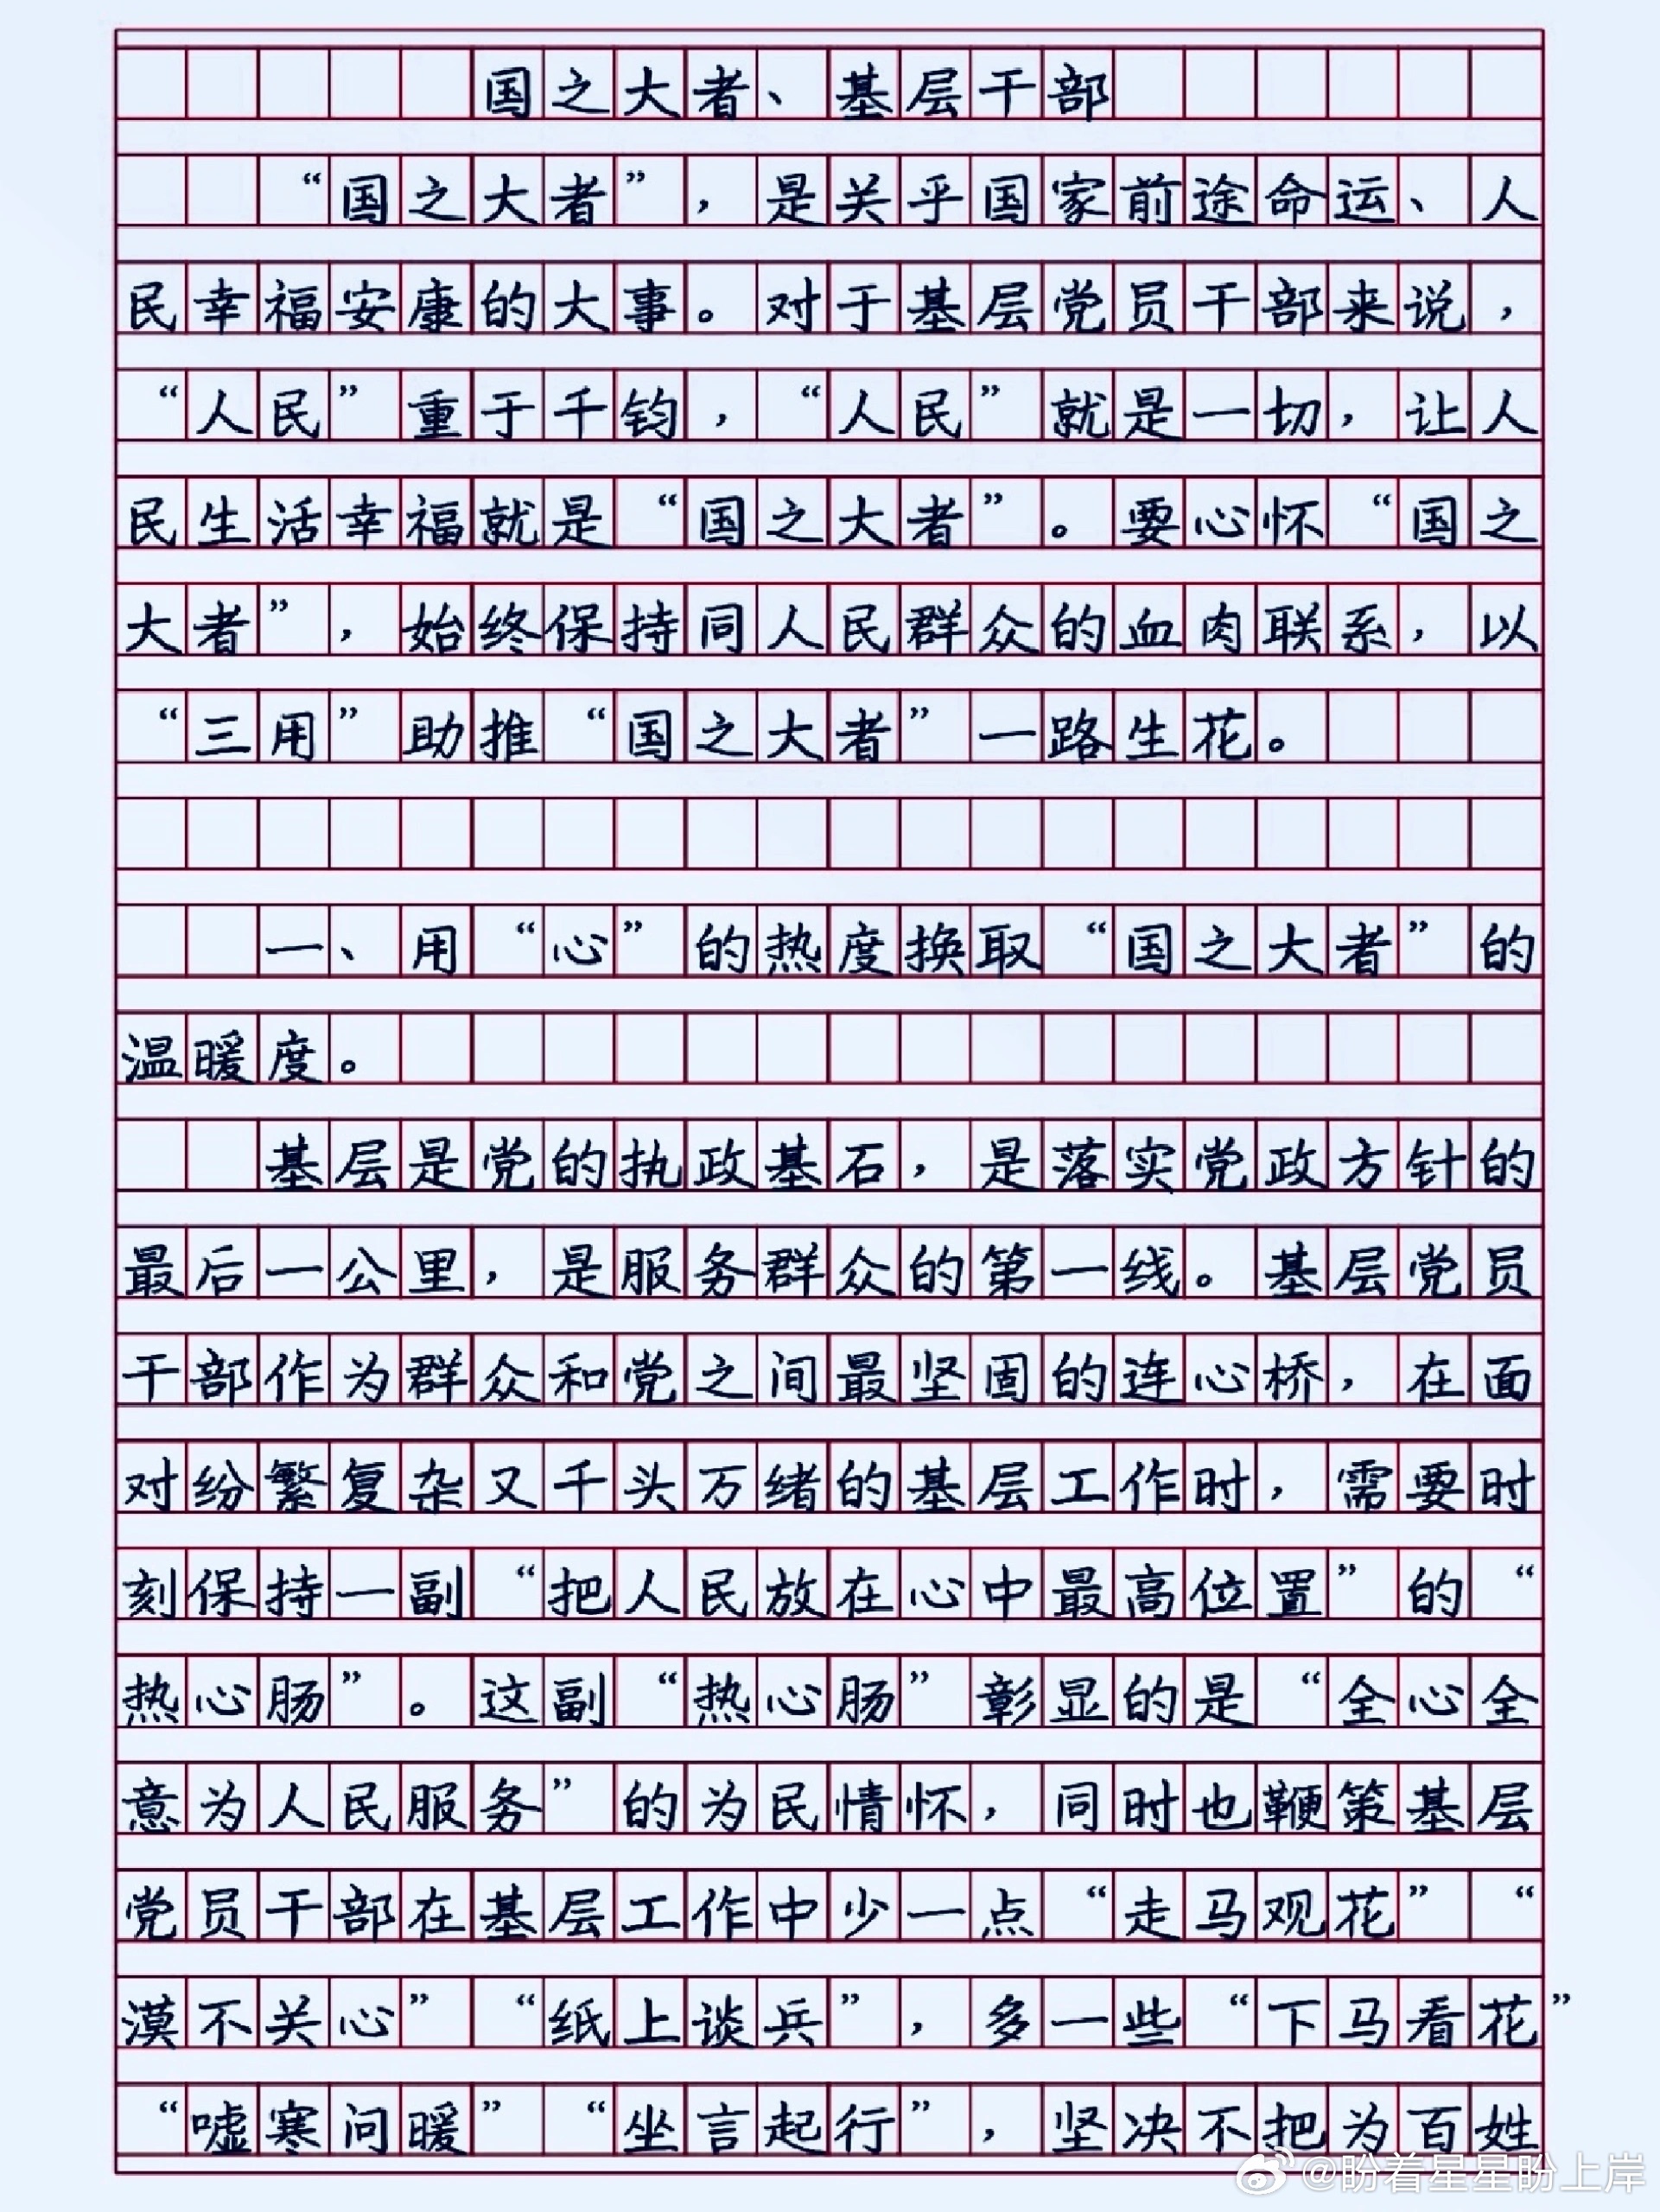 国之大者、基层干部
“国之大者”，是关乎国家前途命运、人
民幸福安康的大事。对于基层党员干部来说，
“人民”重于千钧，“人民”就是一切，让人
民生活幸福就是“国之大者”。要心怀“国之
大者”，始终保持同人民群众的血肉联系，以
“三用”助推“国之大者”一路生花。
一、用“心”的热度换取“国之大者”的
温暖度。
基层是党的执政基石，是落实党政方针的
最后一公里，是服务群众的第一线。基层党员
干部作为群众和党之间最坚固的连心桥，在面
对纷繁复杂又千头万绪的基层工作时，需要时
刻保持一副“把人民放在心中最高位置”的“
热心肠”。这副“热心肠”彰显的是“全心全
意为人民服务”的为民情怀，同时也鞭策基层
党员干部在基层工作中少一点“走马观花”“
漠不关心”“纸上谈兵”，多一些“下马看花”
“嘘寒问暖”“坐言起行”，坚决不把为百姓
@盼着星星盼上岸